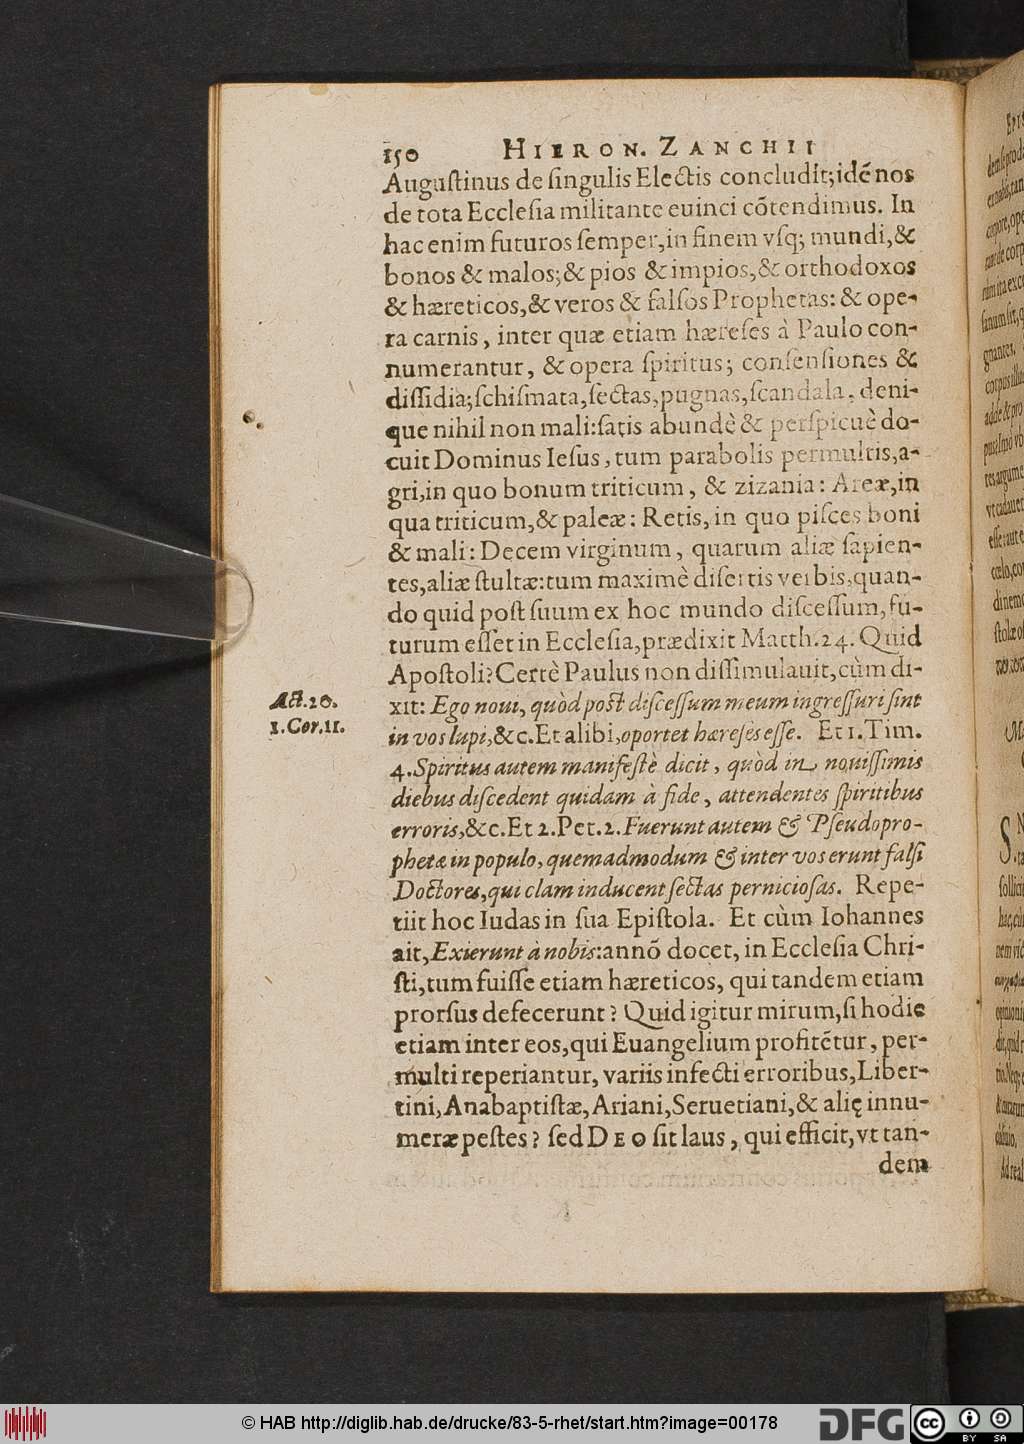 150 HIERON. ZANCHII
Auguſtinus de ſingulis Electis concludit; idẽ nos
de tota Eccleſia militante euinci cõtendimus. In
hac enim futuros ſemper, in finem vſq; mundi, &
bonos & malos; & pios & impios, & orthodoxos
& hæreticos, & veros & falſos Prophetas: & ope-
ra carnis, inter quæ etiam hæreſes à Paulo con-
numerantur, & opera ſpiritus; conſenſiones &
diſſidia; ſchiſmata, ſectas, pugnas, ſcandala, deni-
que nihil non mali: ſatis abundè & perſpicuè do-
cuit Dominus Ieſus, tum parabolis permultis, a-
gri, in quo bonum triticum, & zizania: Areæ, in
qua triticum, & paleæ: Retis, in quo piſces boni
& mali: Decem virginum, quarum aliæ ſapien-
tes, aliæ ſtultæ: tum maximè diſertis verbis, quan-
do quid poſt ſuum ex hoc mundo diſceſſum, fu-
turum eſſet in Eccleſia, prædixit Matth. 24. Quid
Apoſtoli? Certè Paulus non diſſimulauit, cùm di-
Act. 20.
xit: Ego noui, quòd poſt diſceſſum meum ingreſſuri ſint
1. Cor. 11.
in vos lupi, &c. Et alibi, oportet hæreſes eſſe. Et 1. Tim.
4. Spiritus autem manifeſtè dicit, quòd in nouiſſimis
diebus diſcedent quidam à fide, attendentes ſpiritibus
erroris, &c. Et 2. Pet. 2. Fuerunt autem & Pſeudopro-
phetæ in populo, quemadmodum & inter vos erunt falſi
Doctores, qui clam inducent ſectas pernicioſas. Repe-
tiit hoc Iudas in ſua Epiſtola. Et cùm Iohannes
ait, Exierunt à nobis: annõ docet, in Eccleſia Chri-
ſti, tum fuiſſe etiam hæreticos, qui tandem etiam
prorſus defecerunt? Quid igitur mirum, ſi hodie
etiam inter eos, qui Euangelium profitẽtur, per-
multi reperiantur, variis infecti erroribus, Liber-
tini, Anabaptiſtæ, Ariani, Seruetiani, & alię innu-
meræ peſtes? ſed DEO ſit laus, qui efficit, vt tan-
dem
© HAB http://diglib.hab.de/drucke/83-5-rhet/start.htm?image=00178
DFG
cc BY SA